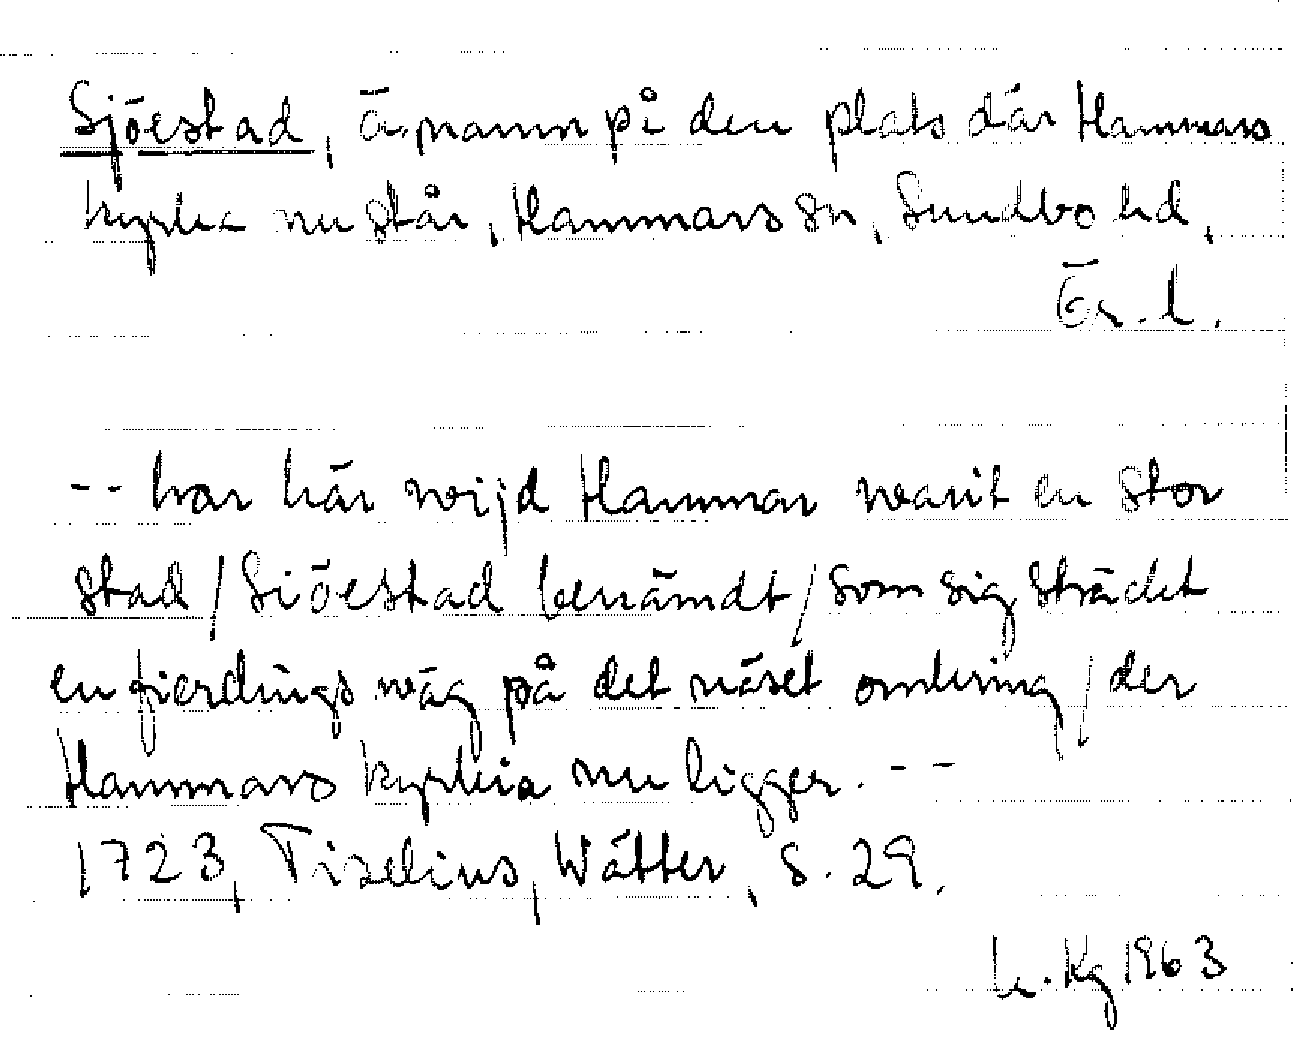 Sjöestad, ä.namn på den plats där Hammars
kyrka nu står, Hammars sn, Sundbo hd,
Ör. l.
-- har här wijd Hammar warit en stor
stad / Siöestad benämdt / som sig sträckt
en fierdings wäg på det näset omkring / der
Hammars kyrkia nu ligger. --
1723, Tiselius, Wätter, s. 29.
Kg 1963